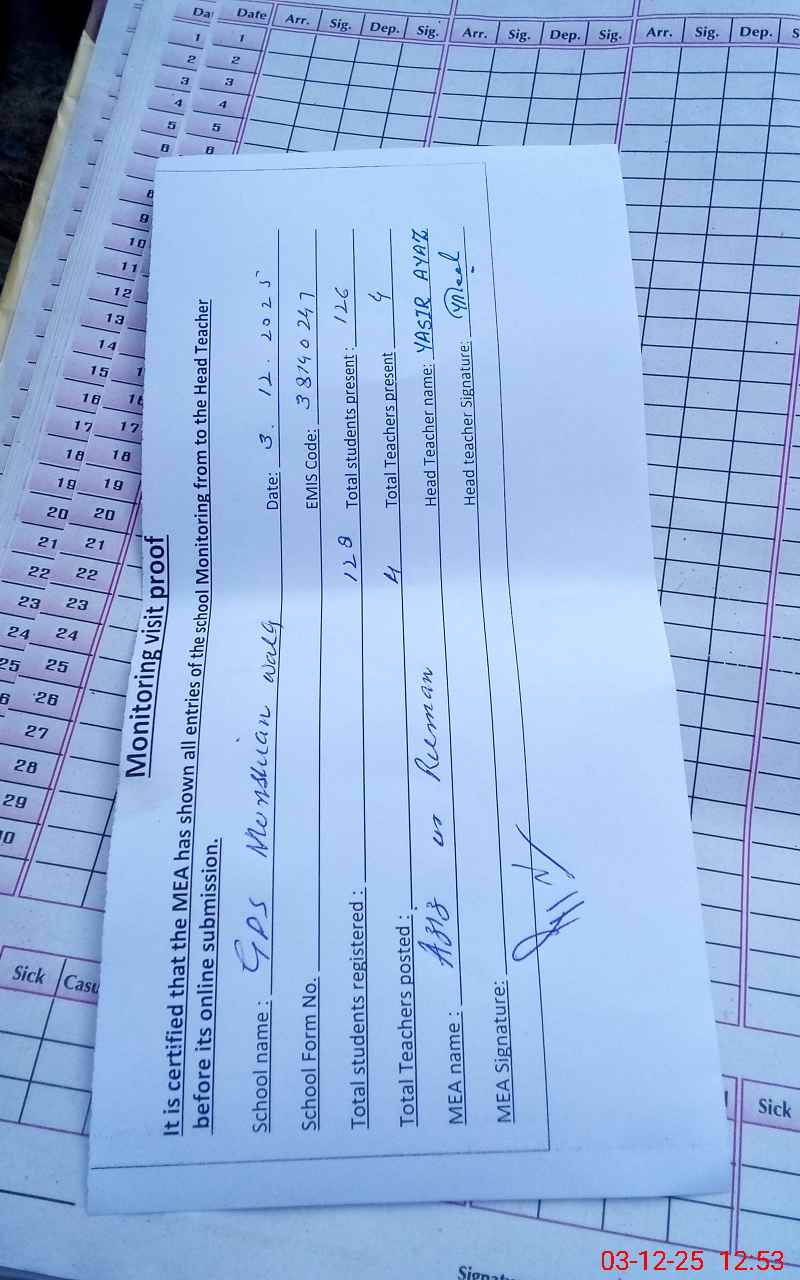 Monitoring visit proof
It is certified that the MEA has shown all entries of the school Monitoring from to the Head Teacher
before its online submission.
School name : GPS Monshian wala Date: 3. 12. 2025
School Form No. EMIS Code: 38140247
Total students registered : 128 Total students present : 126
Total Teachers posted : 4 Total Teachers present 4
MEA name : Aziz ur Reman Head Teacher name: YASIR AYAZ
MEA Signature: Head teacher Signature:
Date Arr. Sig. Dep. Sig. Arr. Sig. Dep. Sig. Arr. Sig. Dep.
1 1
2 2
3 3
4 4
5 5
6 6
8
9
10
11
12
13
14
15
16
17 17
18 18
19 19
20 20
21 21
22 22
23 23
24 24
25 25
26
27
28
29
Sick
Sick
03-12-25 12:53